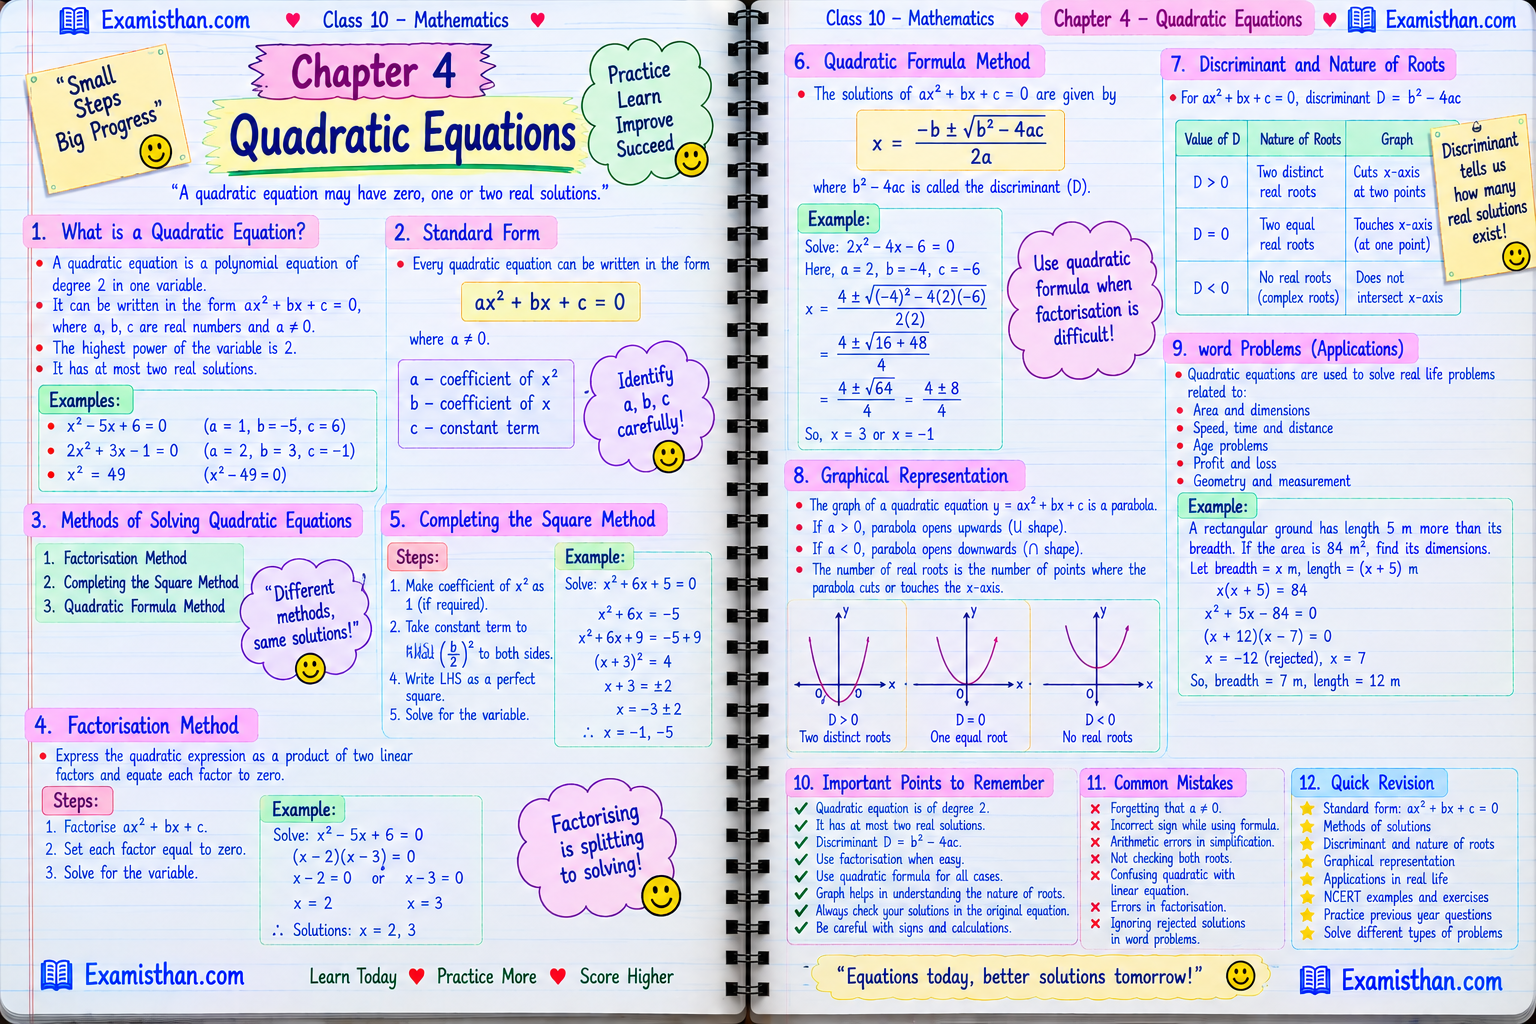 Examisthan.com ♥ Class 10 – Mathematics ♥
“Small
Steps
Big Progress”
Chapter 4
Quadratic Equations
Practice
Learn
Improve
Succeed
“A quadratic equation may have zero, one or two real solutions.”
1. What is a Quadratic Equation?
• A quadratic equation is a polynomial equation of
degree 2 in one variable.
• It can be written in the form ax² + bx + c = 0,
where a, b, c are real numbers and a ≠ 0.
• The highest power of the variable is 2.
• It has at most two real solutions.
Examples:
• x² – 5x + 6 = 0 (a = 1, b = –5, c = 6)
• 2x² + 3x – 1 = 0 (a = 2, b = 3, c = –1)
• x² = 49 (x² – 49 = 0)
2. Standard Form
• Every quadratic equation can be written in the form
ax² + bx + c = 0
where a ≠ 0.
a – coefficient of x²
b – coefficient of x
c – constant term
Identify
a, b, c
carefully!
3. Methods of Solving Quadratic Equations
1. Factorisation Method
2. Completing the Square Method
3. Quadratic Formula Method
“Different
methods,
same solutions!”
5. Completing the Square Method
Steps:
1. Make coefficient of x² as
1 (if required).
2. Take constant term to
(b/2)² to both sides.
4. Write LHS as a perfect
square.
5. Solve for the variable.
Example:
Solve: x² + 6x + 5 = 0
x² + 6x = –5
x² + 6x + 9 = –5 + 9
(x + 3)² = 4
x + 3 = ±2
x = –3 ± 2
∴ x = –1, –5
4. Factorisation Method
• Express the quadratic expression as a product of two linear
factors and equate each factor to zero.
Steps:
1. Factorise ax² + bx + c.
2. Set each factor equal to zero.
3. Solve for the variable.
Example:
Solve: x² – 5x + 6 = 0
(x – 2)(x – 3) = 0
x – 2 = 0 or x – 3 = 0
x = 2 x = 3
∴ Solutions: x = 2, 3
Factorising
is splitting
to solving!
Examisthan.com Learn Today ♥ Practice More ♥ Score Higher
Class 10 – Mathematics ♥ Chapter 4 – Quadratic Equations ♥ Examisthan.com
6. Quadratic Formula Method
• The solutions of ax² + bx + c = 0 are given by
x = (–b ± √(b² – 4ac)) / 2a
where b² – 4ac is called the discriminant (D).
Example:
Solve: 2x² – 4x – 6 = 0
Here, a = 2, b = –4, c = –6
x = (4 ± √((–4)² – 4(2)(–6))) / 2(2)
= (4 ± √(16 + 48)) / 4
= (4 ± √64) / 4 = (4 ± 8) / 4
So, x = 3 or x = –1
Use quadratic
formula when
factorisation is
difficult!
7. Discriminant and Nature of Roots
• For ax² + bx + c = 0, discriminant D = b² – 4ac
Value of D Nature of Roots Graph
D > 0 Two distinct real roots Cuts x-axis at two points
D = 0 Two equal real roots Touches x-axis (at one point)
D < 0 No real roots (complex roots) Does not intersect x-axis
Discriminant
tells us
how many
real solutions
exist!
8. Graphical Representation
• The graph of a quadratic equation y = ax² + bx + c is a parabola.
• If a > 0, parabola opens upwards (U shape).
• If a < 0, parabola opens downwards (∩ shape).
• The number of real roots is the number of points where the
parabola cuts or touches the x-axis.
y y y
x x x
0 0 0 0
D > 0 D = 0 D < 0
Two distinct roots One equal root No real roots
9. word Problems (Applications)
• Quadratic equations are used to solve real life problems
related to:
• Area and dimensions
• Speed, time and distance
• Age problems
• Profit and loss
• Geometry and measurement
Example:
A rectangular ground has length 5 m more than its
breadth. If the area is 84 m², find its dimensions.
Let breadth = x m, length = (x + 5) m
x(x + 5) = 84
x² + 5x – 84 = 0
(x + 12)(x – 7) = 0
x = –12 (rejected), x = 7
So, breadth = 7 m, length = 12 m
10. Important Points to Remember
✓ Quadratic equation is of degree 2.
✓ It has at most two real solutions.
✓ Discriminant D = b² – 4ac.
✓ Use factorisation when easy.
✓ Use quadratic formula for all cases.
✓ Graph helps in understanding the nature of roots.
✓ Always check your solutions in the original equation.
✓ Be careful with signs and calculations.
11. Common Mistakes
✗ Forgetting that a ≠ 0.
✗ Incorrect sign while using formula.
✗ Arithmetic errors in simplification.
✗ Not checking both roots.
✗ Confusing quadratic with
linear equation.
✗ Errors in factorisation.
✗ Ignoring rejected solutions
in word problems.
12. Quick Revision
★ Standard form: ax² + bx + c = 0
★ Methods of solutions
★ Discriminant and nature of roots
★ Graphical representation
★ Applications in real life
★ NCERT examples and exercises
★ Practice previous year questions
★ Solve different types of problems
“Equations today, better solutions tomorrow!”
Examisthan.com